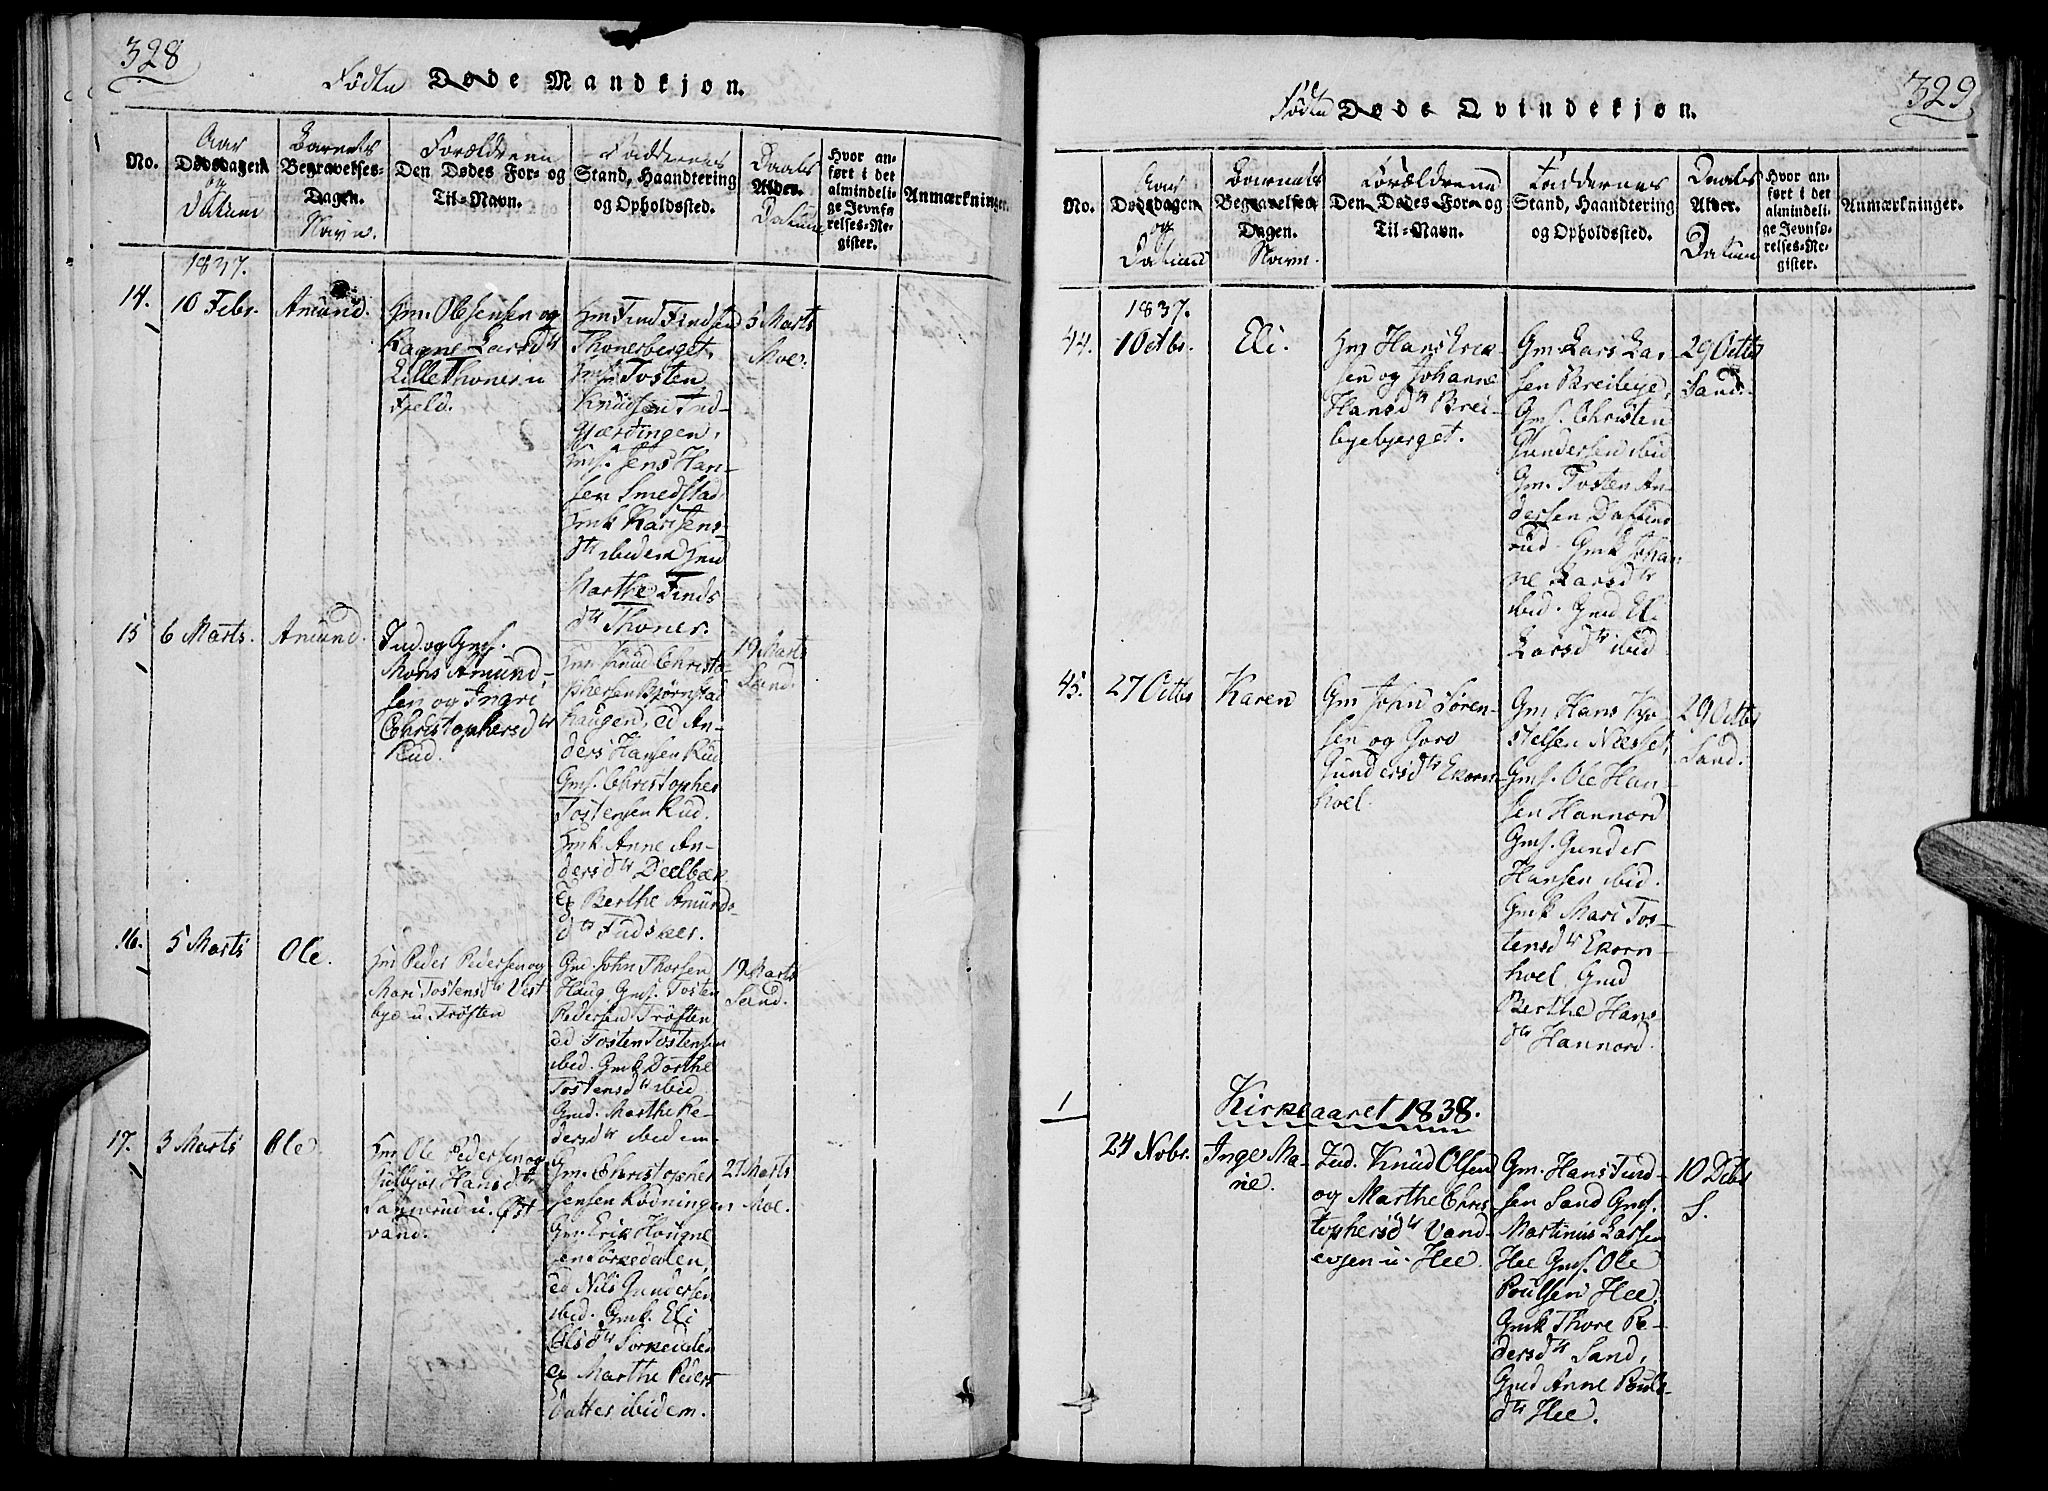 328
Fødte Døde Mandkjøn.
No.
Aar
Dødsdagen
og
Datum
Barnets
Begravelses-
Dagen.
Navn.
Forældrene
Den Dødes For- og
Til-Navn.
Faddernes
Stand, Haandtering
og Opholdssted.
Daabs
Alder.
Datum
Hvor an-
ført i det
almindeli-
ge Jevnfø
relses-Re-
gister.
Anmærkninger.
1837.
14.
10 Febr.
Amund.
Gm. Ole Jensen og
Kagne Larsdtr
Lille Thoner u
Fjeld.
Gm Find Findsen
Thonerberget,
Gmf. Tosten
Knudsen Ind-
gjærdingen,
Gmf. Jens Han-
sen Smedstad
Gmk Kari Jens-
dtr ibidem Gmd
Marthe Finds
dtr Thoner.
5 Marts
Moe.
15
6 Marts.
Amund.
Ind. og Gmf.
Mons Amund-
sen og Ingri
Christophersdtr
Rud.
Gm. Knud Christo-
phersen Bjørnstad
haugen, ed An-
ders Hansen Rud
Gmf. Christopher
Tostensen Rud.
Gmk. Anne An-
dersdtr Deelbæk
Eg Berthe Amunds-
dtr Fudsker.
19 Marts
Sand.
16.
5 Marts
Ole.
Gm Peder Pedersen og
Mari Tostensdtr Vest
bye u. Trøften
Gm. John Thorsen
Haug. Gmf. Tosten
Pedersen Trøften
ed Tosten Tostensen
ibid. Gmk Dorthe
Tostensdtr ibid
Gmd. Marthe Pe-
dersdtr ibidem
19 Marts
Sand.
17.
3 Marts
Ole.
Gm Ole Pedersen og
Gulbjør Hansdtr
Sannerud u. Øst-
vand.
Gm. Christopher
Jensen Rødningen
Gm. Erik Hougne
sen Sørkedalen,
ed Nils Gundersen
ibid. Gmk. Eli
Olsdtr Sorkedalen
eg Marthe Peders
datter ibidem.
27 Marts
Moe.
329
Fødte Døde Qvindekjøn.
No.
Aar
Dødsdagen
og
Datum
Barnets
Begravelses
Dagen.
Navn.
Forældrene
Den Dødes For- og
Til-Navn.
Faddernes
Stand, Haandtering
og Opholdssted.
Daabs
Alder.
Datum
Hvor an-
ført i det
almindeli-
ge Jevnfø-
relses-Re-
gister.
Anmærkninger.
1837.
44.
1 Octbr.
Eli.
Gm Hans Erik-
sen og Johanne
Hansdtr Brei-
byebjerget.
Gm. Lars Lar-
sen Breibye,
Gmf. Christen
Gundersen ibid
Gm. Tosten An-
dersen Daffins-
rud. Gmk Johan
ne Larsdtr
ibid. Gmd Eli
Larsdtr ibid
29 Octbr
Sand.
45.
27 Octbr
Karen
Gm John Søren-
sen og Goro
Gundersdtr Ekorn-
hoel.
Gm Hans Kjø-
stelsen Næsset,
Gmf. Ole Han-
sen Hannord
Gmf. Gunder
Hansen ibid.
Gmk Mari Tos-
tensdtr Ekorn
hoel. Gmd
Berthe Hans-
dtr Hannord.
29 Octbr
Sand.
Kirkeaaret 1838.
1
24 Nobr.
Inger Ma-
rie.
Ind. Knud Olsen
og Marthe Chris
tophersdtr Vand-
ersen u. Hee.
Gm. Hans Find-
sen Sand Gmf.
Martinus Larsen
Hee Gmf. Ole
Poulsen Hee.
Gmk Thore Pe-
dersdtr Sand,
Gmd Anne Pouls-
dtr Hee.
10 Debr
S.